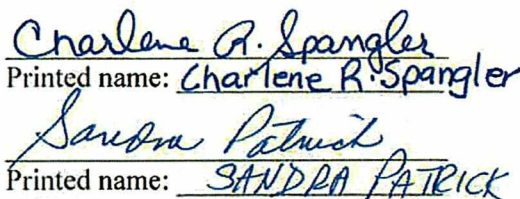 Charlene R. Spangler
Printed name: Charlene R. Spangler
Sandra Patrick
Printed name: SANDRA PATRICK